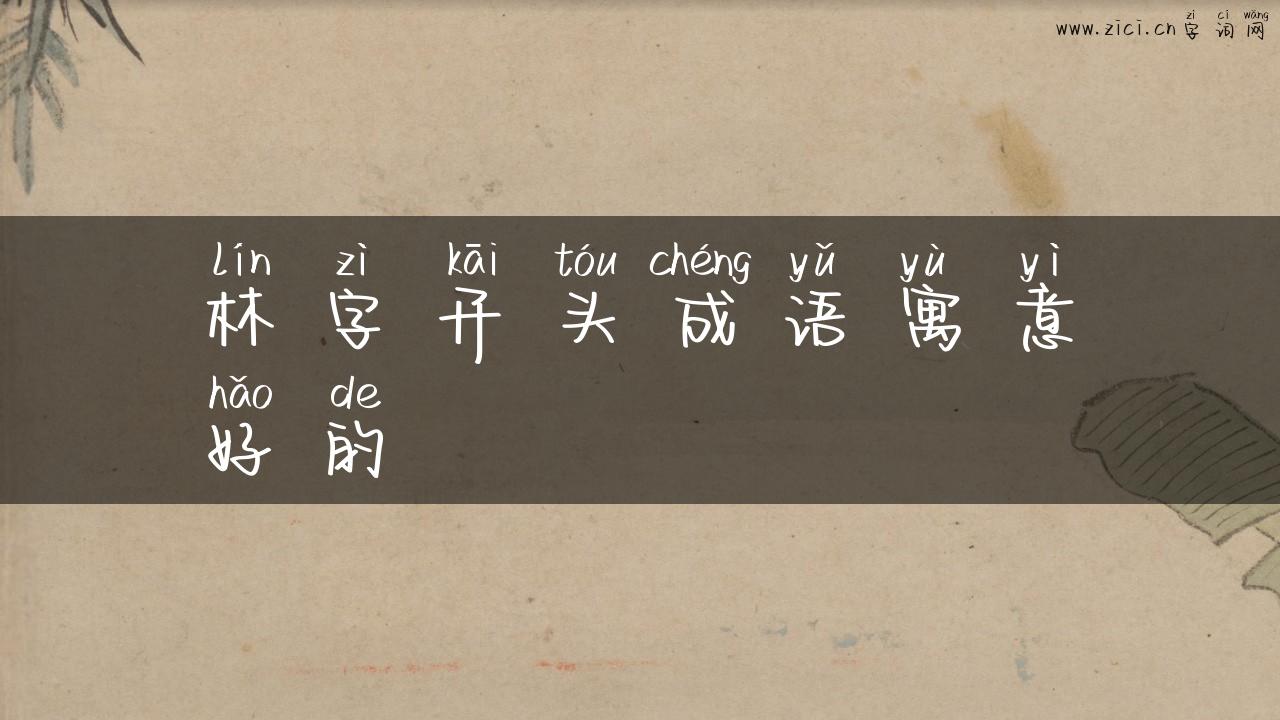 zì cí wǎng
www.zici.cn 字词网
lín zì kāi tóu chéng yǔ yù yì
林字开头成语寓意
hǎo de
好的